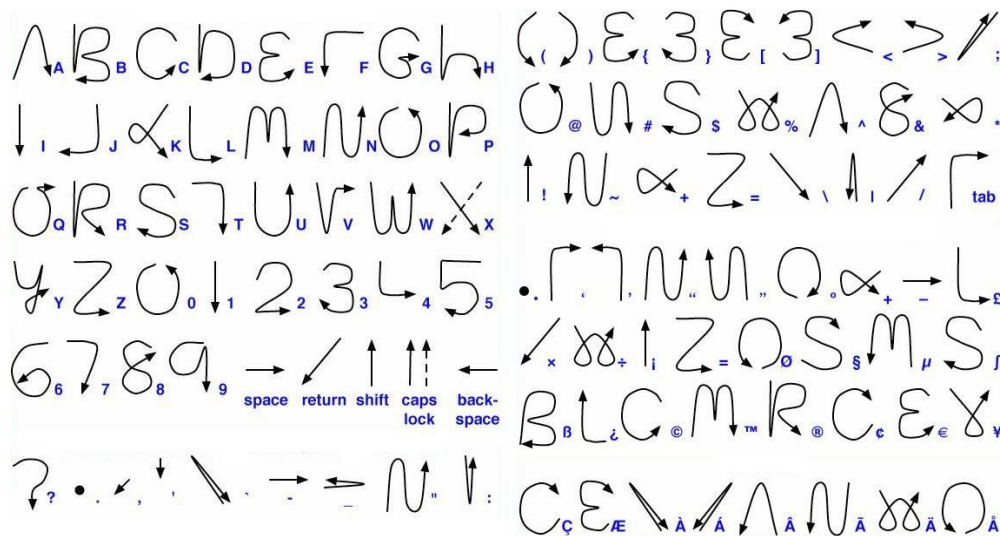 A B C D E F G H
I J K L M N O P
Q R S T U V W X
Y Z 0 1 2 3 4 5
6 7 8 9 space return shift caps lock back-space
? . , ' ` - _ " :
( ) { } [ ] < > ;
@ # $ % ^ & *
! ~ + = \ | / tab
. ‘ ’ “ ” º + – £
× ÷ ¡ = Ø § µ ∫
ß ¿ © ™ ® ¢ € ¥
Ç Æ À Á Â Ã Ä Å